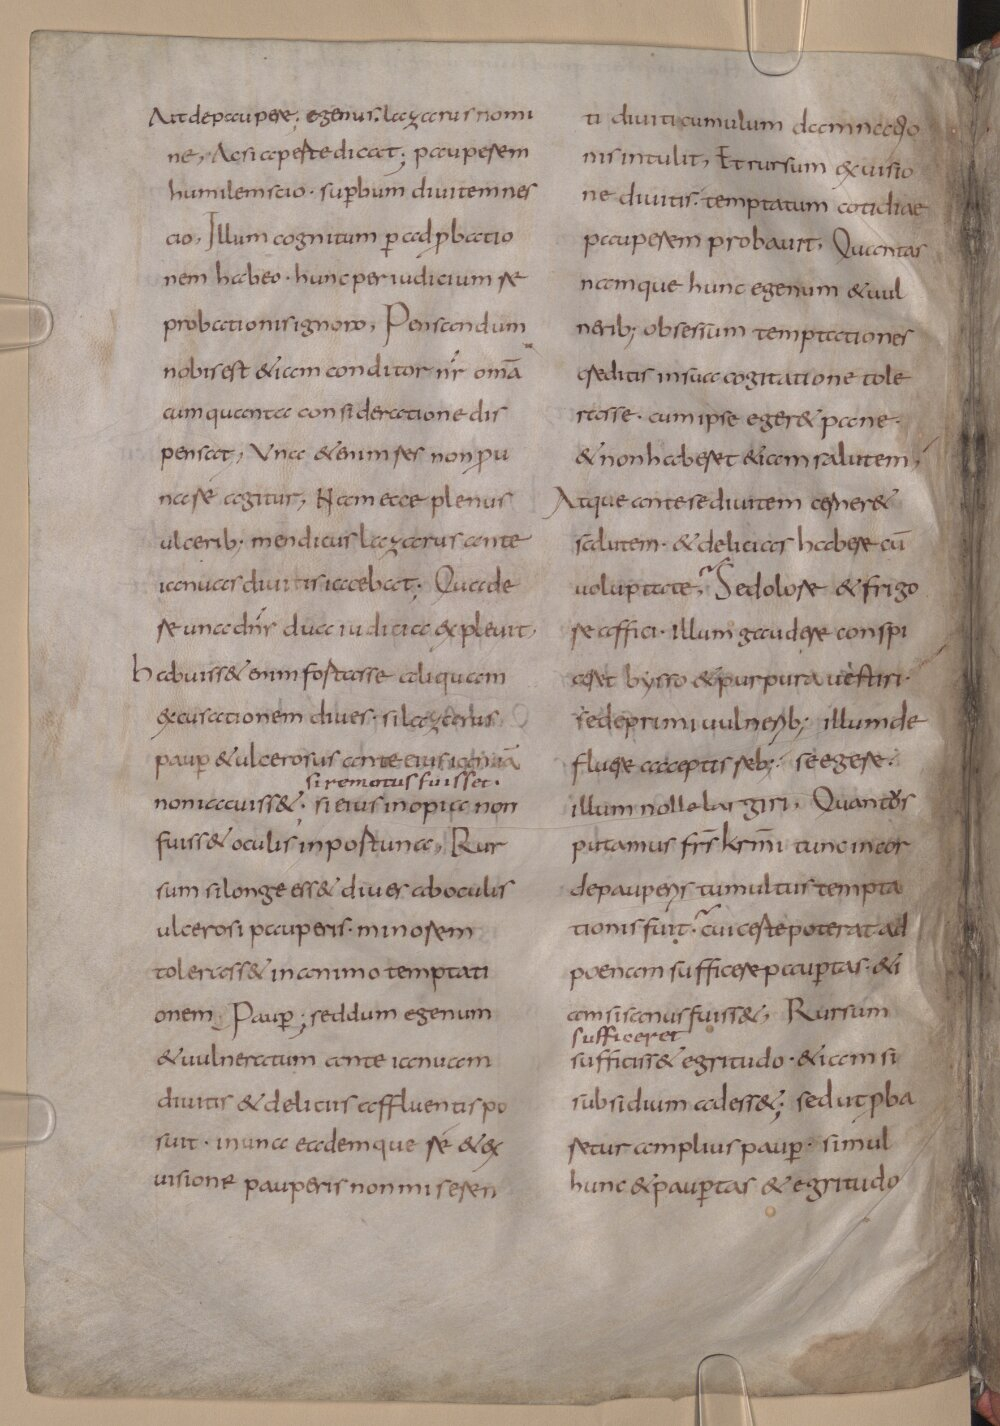 Ait de paupere; egenus; lazarus nomi
ne, Ac si aperte dicat; pauperem
humilem scio · supbum divitem nes
cio, Illum cognitum p adpbatio
nem habeo · hunc per iudicium re
probationis ignoro, Pensandum
nobis est & iam conditor nr omā
cum quanta consideratione dis
pensat, Una &enim res non p u
na re agitur, Nam ecce plenus
ulcerib; mendicus lazarus ante
ianuas divitis iacebat; Qua de
re una dnr dua iudicia explevit,
habuiss& enim fortasse aliquam
excusationem dives · si lazarus
paup & ulcerosus ante eius ianuā
si remotus fuisset ·
non iacuiss& · si eius inopia non
fuiss& oculis inportuna, Rur
sum si longe ess& dives ab oculis
ulcerosi pauperis · minorem
tolerass& in animo temptati
onem Paup; sed dum egenum
& vulneratum ante ianuam
divitis & deliciis affluentis po
suit · in una eademque re & ex
visione pauperis non miseren
ti diviti cumulum damnatio
nis intulit, Et rursum ex visio
ne divitis · temptatum cotidiae
pauperem probavit, Quantas
namque hunc egenum & vul
nerib; obsessum temptationes
creditis in sua cogitatione tole
rasse · cum ipse eger& pane ·
& non haberet & iam salutem,
Atque ante se divitem cerner&
salutem · & delicias habere cū
voluptate, Se dolore & frigo
re affici · illum gaudere conspi
ceret bysso & purpura vestiri ·
se deprimi vulnerib; illum de
fluere acceptis reb; se egere ·
illum nolle largiri, Quantos
putamus frs krmi tunc in cor
de pauperis tumultus tempta
tionis fuit · cui certe poterat ad
poenam sufficere pauptas · & i
am si sanus fuiss&, Rursum
sufficeret
sufficiss& egritudo · & iam si
subsidium adess&; sed ut pba
retur amplius paup · simul
hunc & pauptas & egritudo